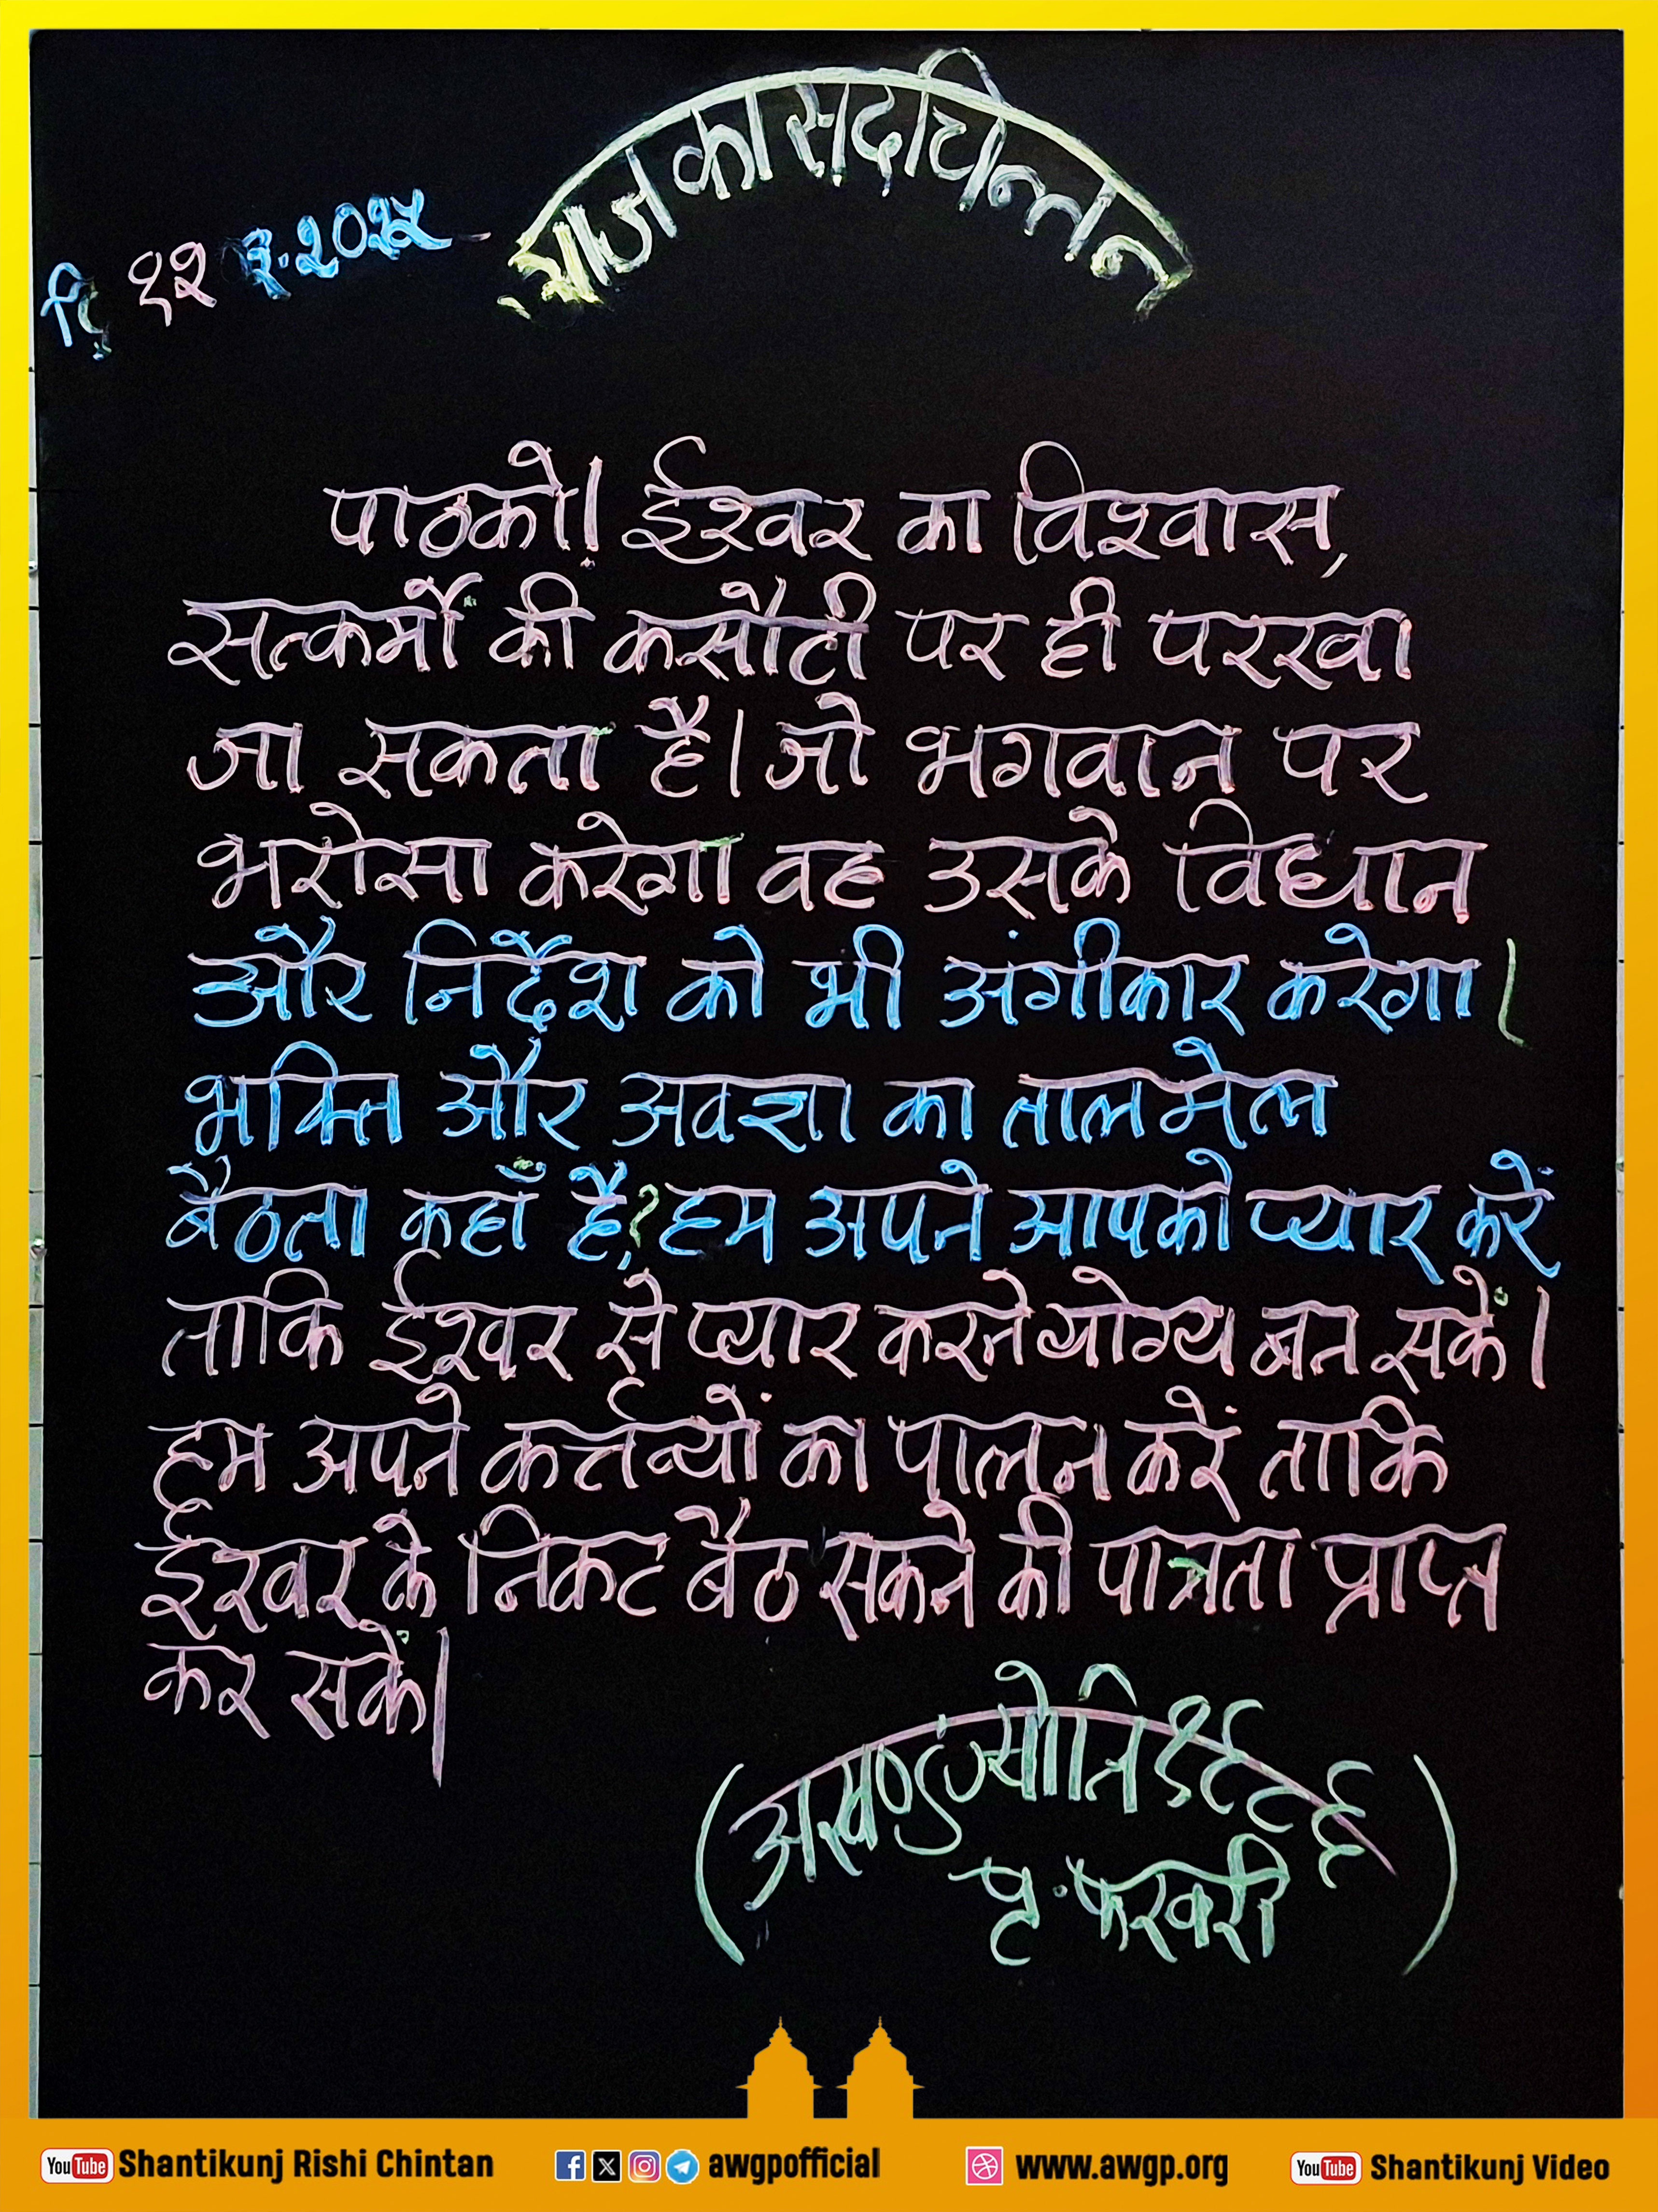 आज का सद्चिन्तन
दि १२.३.२०२५
पाठको! ईश्वर का विश्वास,
सत्कर्मों की कसौटी पर ही परखा
जा सकता है। जो भगवान पर
भरोसा करेगा वह उसके विधान
और निर्देश को भी अंगीकार करेगा।
भक्ति और अवज्ञा का तालमेल
बैठता कहाँ है? हम अपने आपको प्यार करें
ताकि ईश्वर से प्यार करने योग्य बन सकें।
हम अपने कर्त्तव्यों का पालन करें ताकि
ईश्वर के निकट बैठ सकने की पात्रता प्राप्त
कर सकें।
(अखण्ड ज्योति १९८६
पृ. फरवरी)
YouTube Shantikunj Rishi Chintan awgpofficial www.awgp.org YouTube Shantikunj Video